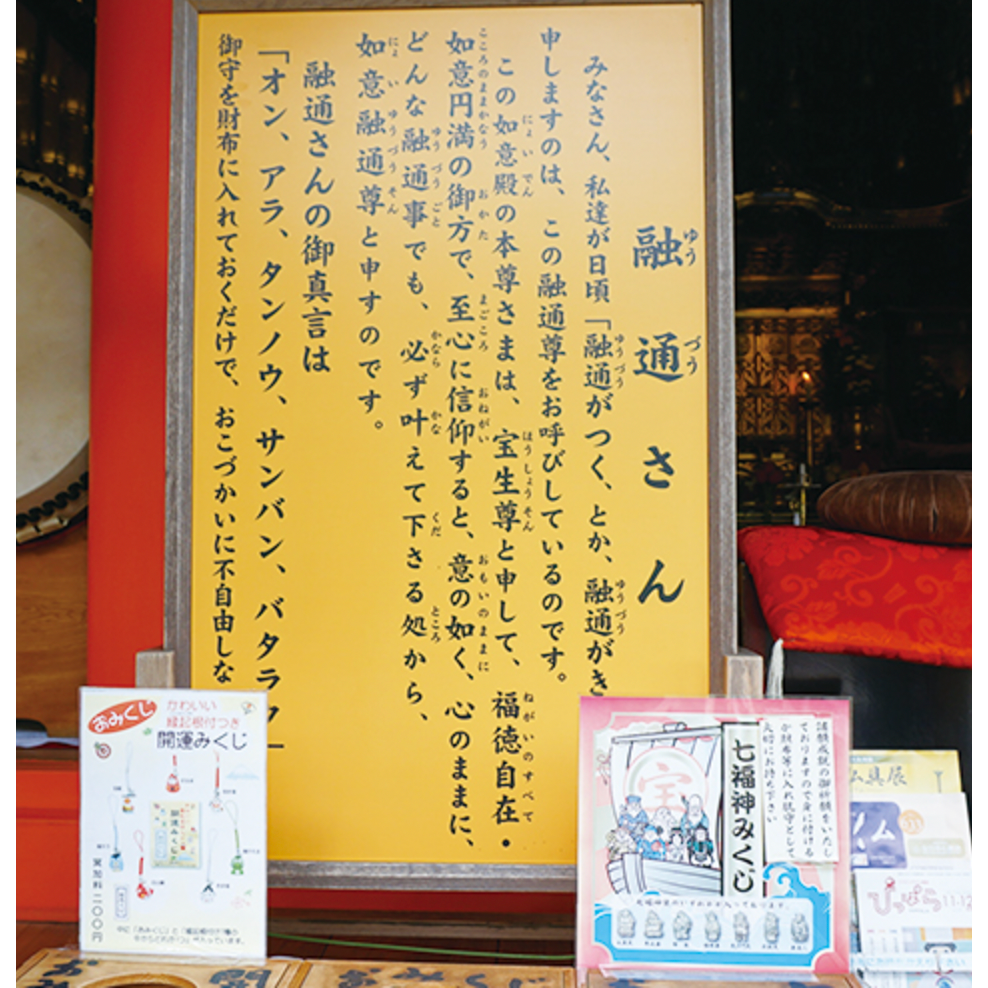 融通さん
みなさん、私達が日頃「融通がつく、とか、融通がき
申しますのは、この融通尊をお呼びしているのです。
この如意殿の本尊さまは、宝生尊と申して、福徳自在・
如意円満の御方で、至心に信仰すると、意の如く、心のままに、
どんな融通事でも、必ず叶えて下さる処から、
如意融通尊と申すのです。
融通さんの御真言は
「オン、アラ、タンノウ、サンバン、バタラ
御守を財布に入れておくだけで、おこづかいに不自由しな
おみくじ
かわいい
縁起根付つき
開運みくじ
開運みくじ
冥加料二〇〇円
七福神みくじ
諸願成就の御祈願をいたし
ておりますので身に付ける
か財布等に入れ御守として
大切にお持ち下さい
宝
ぴっぱら
11.12
おみくじ